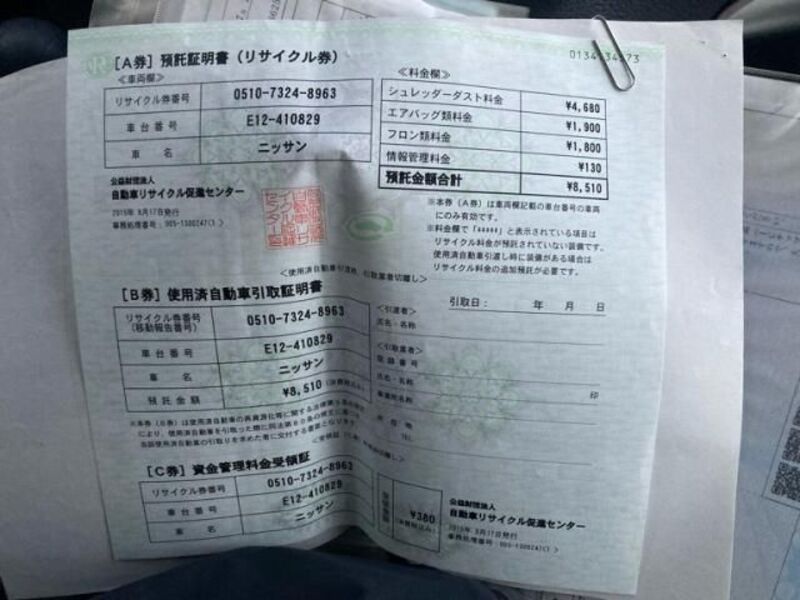 [A券] 預託証明書(リサイクル券)
≪車両欄≫
リサイクル券番号 0510-7324-8963
車台番号 E12-410829
車名 ニッサン
公益財団法人
自動車リサイクル促進センター
2015年 3月17日発行
≪料金欄≫
シュレッダーダスト料金 ¥4,680
エアバッグ類料金 ¥1,900
フロン類料金 ¥1,800
情報管理料金 ¥130
預託金額合計 ¥8,510
※本券(A券)は車両欄記載の車台番号の車両
にのみ有効です。
※料金欄で「*****」と表示されている項目は
リサイクル料金が預託されていない装備です。
使用済自動車引渡し時に装備がある場合は
リサイクル料金の追加預託が必要です。
[B券] 使用済自動車引取証明書
リサイクル券番号
(移動報告番号) 0510-7324-8963
車台番号 E12-410829
車名 ニッサン
預託金額 ¥8,510
引取日: 年 月 日
<引渡者>
氏名・名称
<引取業者>
登録番号
氏名・名称
事業所名称 印
所在地
TEL
[C券] 資金管理料金受領証
リサイクル券番号 0510-7324-8963
車台番号 E12-410829
車名 ニッサン
¥380
公益財団法人
自動車リサイクル促進センター
2015年 3月17日発行